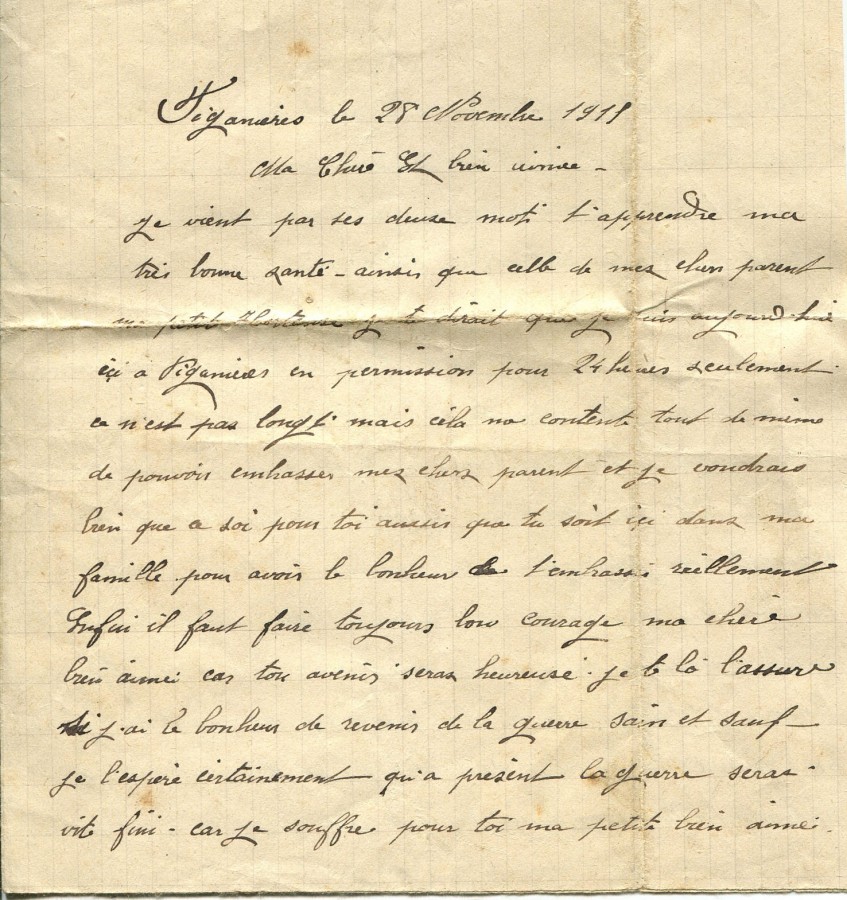 Figanières le 28 Novembre 1915
Ma Chère Et bien aimée -
Je vient par ses deuse mots t'apprendre ma
très bonne santé - ainsis que celle de mez chers parent
ma petite Hortense je te dirait que je suis aujourd'hui
içi a Figanières en permission pour 24 heures seulement
ce n'est pas longt mais cela me contente tout de même
de pouvoir embasser mez chers parent et je voudrais
bien que ce soi pour toi aussis que tu soit içi dans ma
famille pour avoir le bonheur de t'embrassé réellement
Enfin il faut faire toujours bon courage ma chère
bien aimée car ton avenir seras heureuse. je te lâ l'assure
si j'ai le bonheur de revenir de la guerre sain et sauf -
je l'espère certainement qu'a présent la guerre seras
vite fini - car je souffre pour toi ma petite bien aimée.